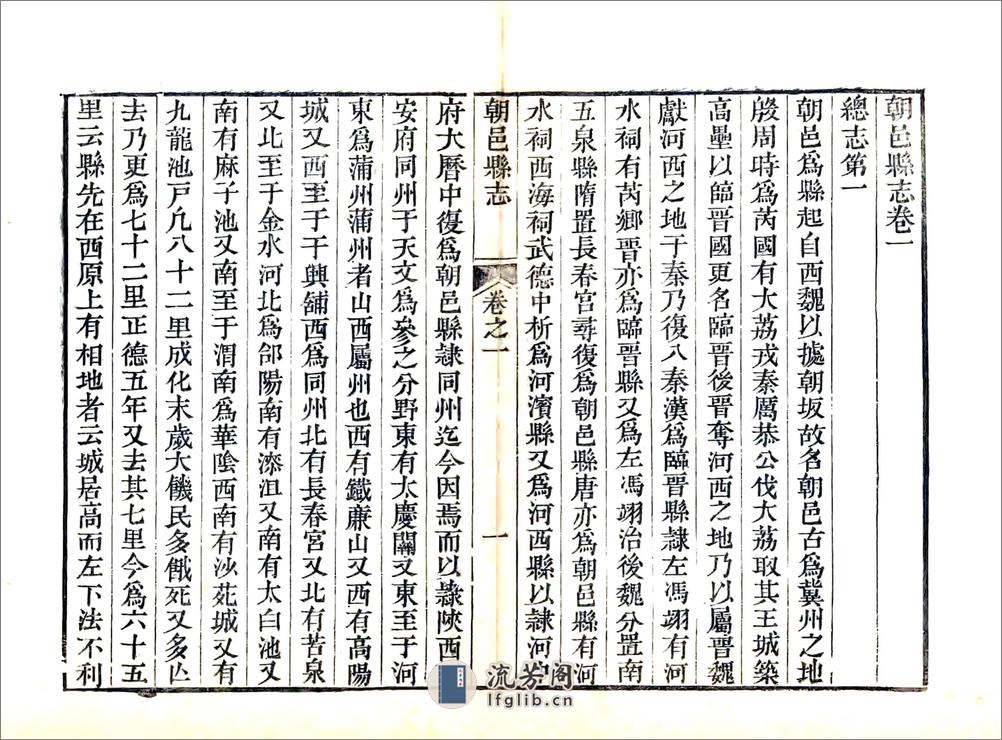 朝邑縣志卷一
總志第一
朝邑爲縣起自西魏以據朝坂故名朝邑古爲冀州之地
殷周時爲芮國有大荔戎秦厲恭公伐大荔取其王城築
高壘以臨晉國更名臨晉後晉奪河西之地乃以屬晉魏
獻河西之地于秦乃復入秦漢爲臨晉縣隸左馮翊有河
水祠有芮鄉晉亦爲臨晉縣又爲左馮翊治後魏分置南
五泉縣隋置長春宮尋復爲朝邑縣唐亦爲朝邑縣有河
水祠西海祠武德中析爲河濱縣又爲河西縣以隸河中
朝邑縣志
卷之一
一
府大曆中復爲朝邑縣隸同州迄今因焉而以隸陝西
安府同州于天文爲參之分野東有大慶關又東至于河
東爲蒲州蒲州者山西屬州也西有鐵鎌山又西有高陽
城又西至于干興舖西爲同州北有長春宮又北有苦泉
又北至于金水河北爲郃陽南有漆沮又南有太白池又
南有麻子池又南至于渭南爲華陰西南有沙苑城又有
九龍池戶凡八十二里成化末歲大饑民多餓死又多亾
去乃更爲七十二里正德五年又去其七里今爲六十五
里云縣先在西原上有相地者云城居高而左下法不利
流芳閣
lfglib.cn